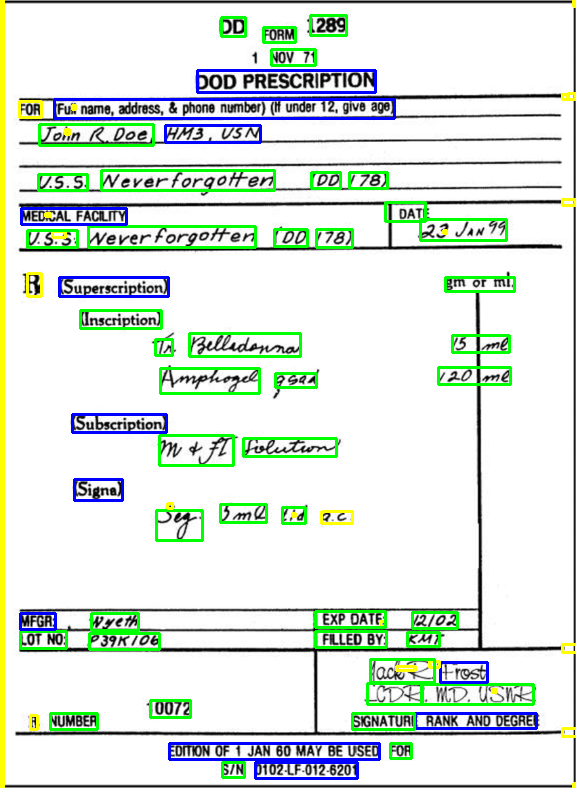 DD FORM 1289
1 NOV 71
DOD PRESCRIPTION
FOR (Full name, address, & phone number) (If under 12, give age)
John R. Doe, HM3, USN
U.S.S. Neverforgotten (DD 178)
MEDICAL FACILITY DATE
U.S.S. Neverforgotten (DD 178) 23 JAN 99
R (Superscription) gm or ml.
(Inscription)
Tr. Belladonna 15 ml
Amphogel qsad 120 ml
(Subscription)
M & Ft Solution
(Signa)
Sig. 5ml tid a.c.
MFGR: Wyeth EXP DATE: 12/02
LOT NO: P39K106 FILLED BY: KMT
Jack R. Frost
LCDR, MD, USNR
R NUMBER 10072 SIGNATURE RANK AND DEGREE
EDITION OF 1 JAN 60 MAY BE USED FOR
S/N 0102-LF-012-6201